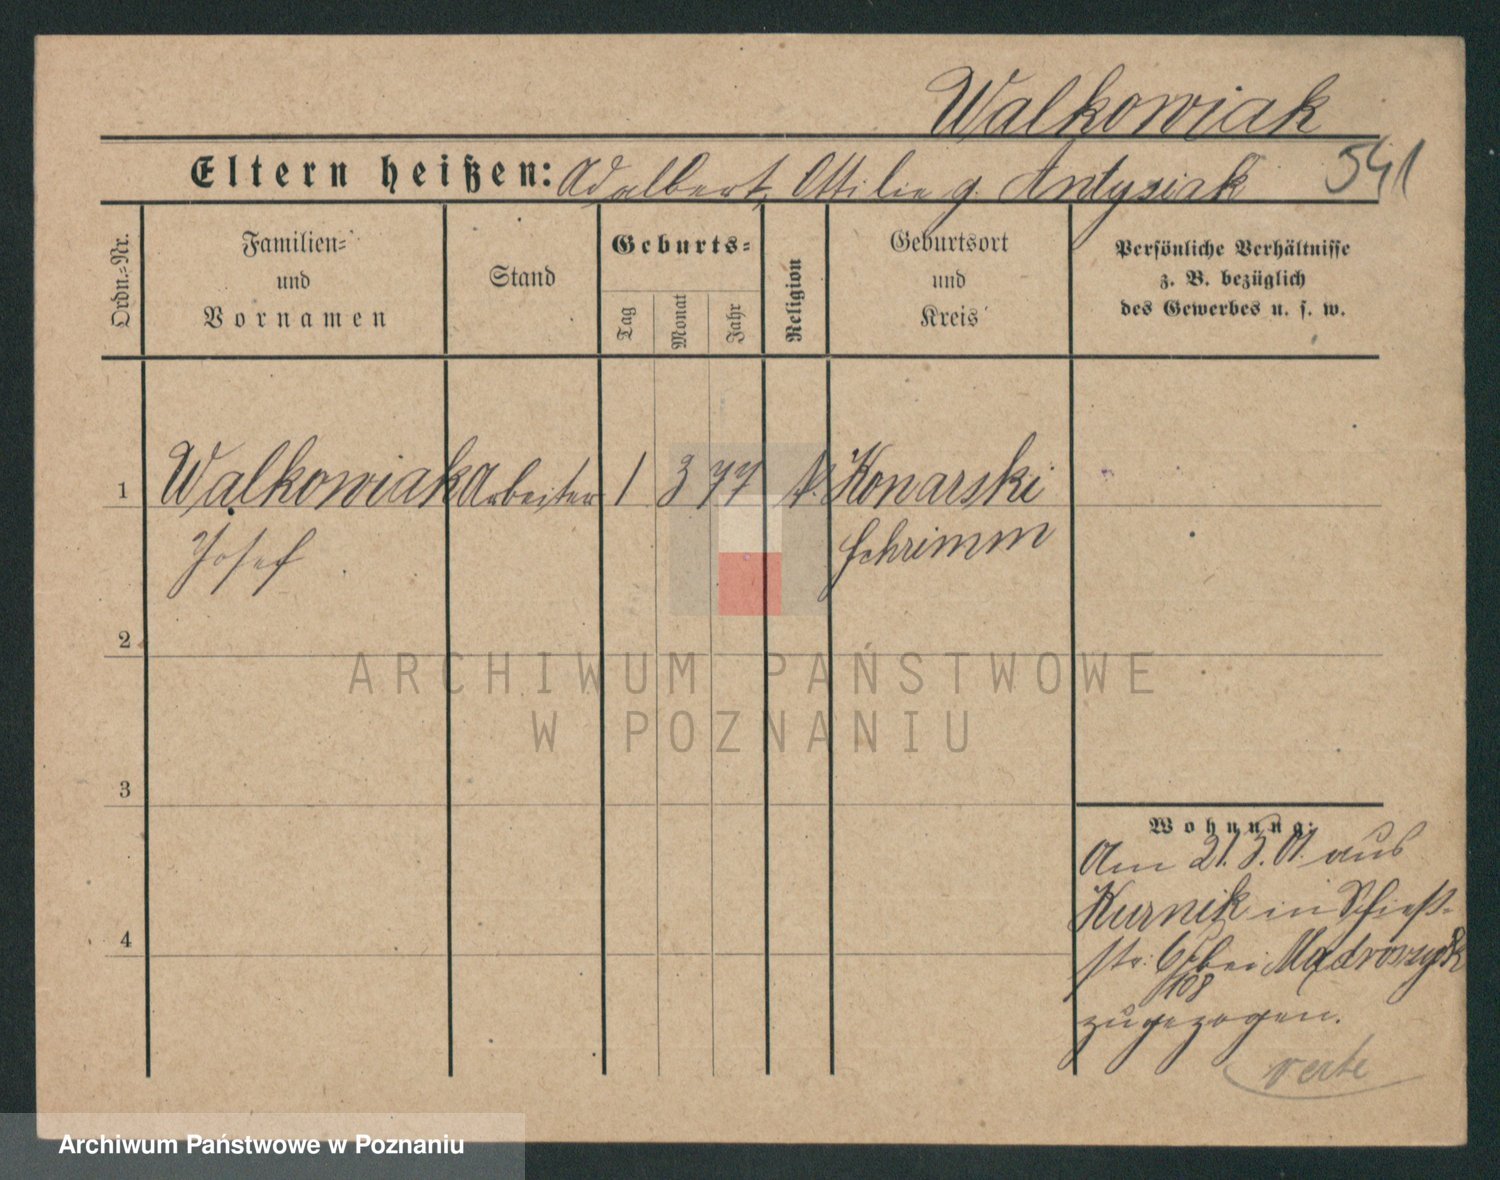 Walkowiak
Eltern heißen: Adalbert, Ottilie g. Antysiak 541
Ordn.=Nr.
Familien=
und
Vornamen
Stand
Geburts=
Tag
Monat
Jahr
Religion
Geburtsort
und
Kreis
Persönliche Verhältnisse
z. B. bezüglich
des Gewerbes u. s. w.
1 Walkowiak Arbeiter 1 3 77 k. Konarski
Josef Schrimm
2
ARCHIWUM PAŃSTWOWE
W POZNANIU
3
Wohnung:
Am 21.3.01. aus
Kurnik in Schieß-
str. 6 bei
108
zugezogen.
4
verte
Archiwum Państwowe w Poznaniu